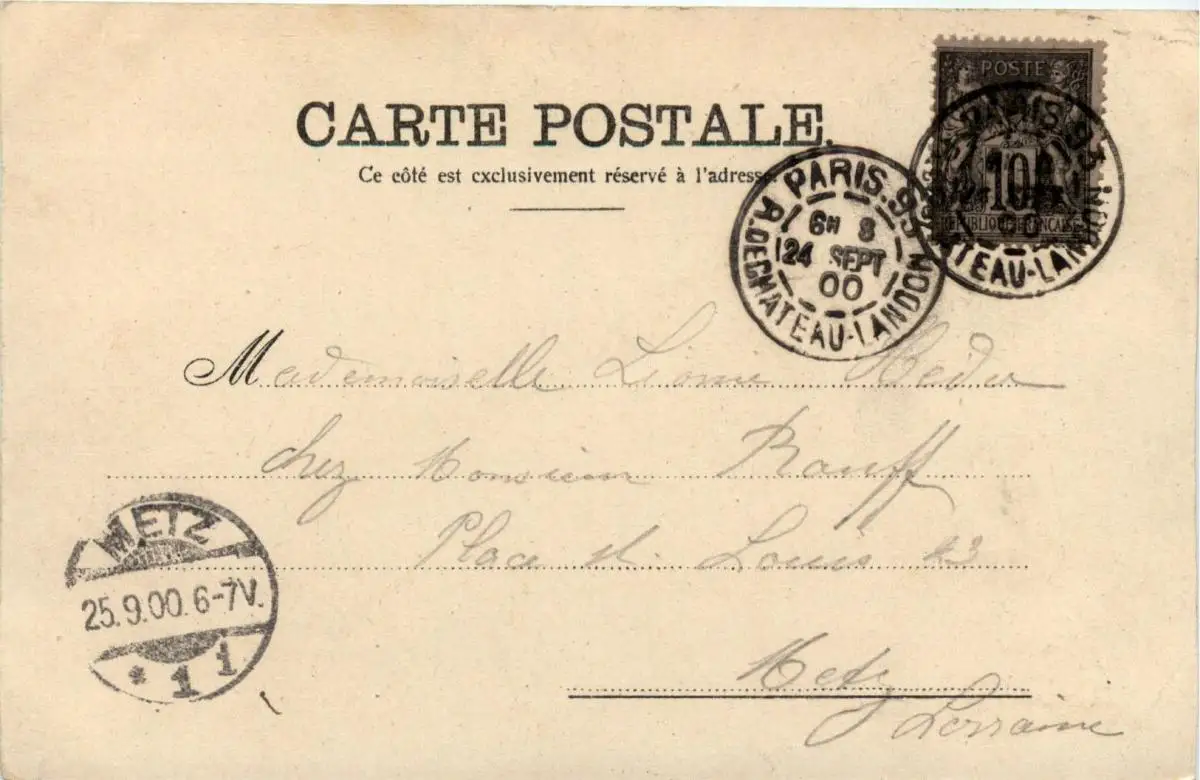 CARTE POSTALE.
Ce côté est exclusivement réservé à l'adresse
POSTE
10
REPUBLIQUE FRANCAISE
PARIS. 93
R. DE CHATEAU-LANDON
6H 8
24 SEPT
00
PARIS. 93
CHATEAU-LANDON
Mademoiselle
chez Monsieur Rauff
Place st. Louis 43
Metz
Lorraine
METZ
25.9.00. 6-7V.
* 1 i